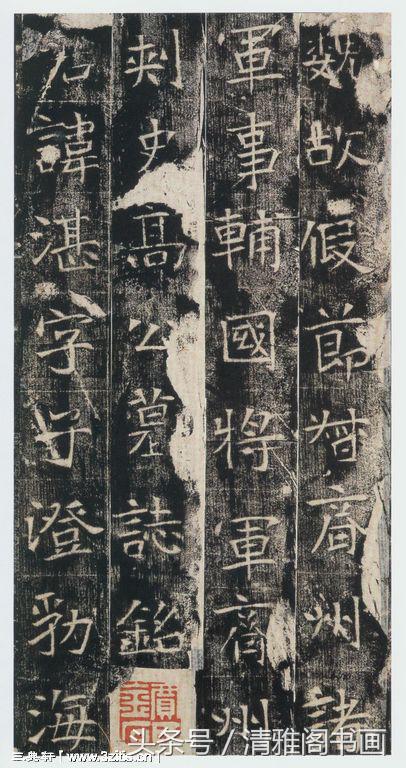 魏故假節督齊州諸
軍事輔國將軍齊州
刺史高公墓誌銘
君諱湛字子澄勃海
头条号／清雅阁书画